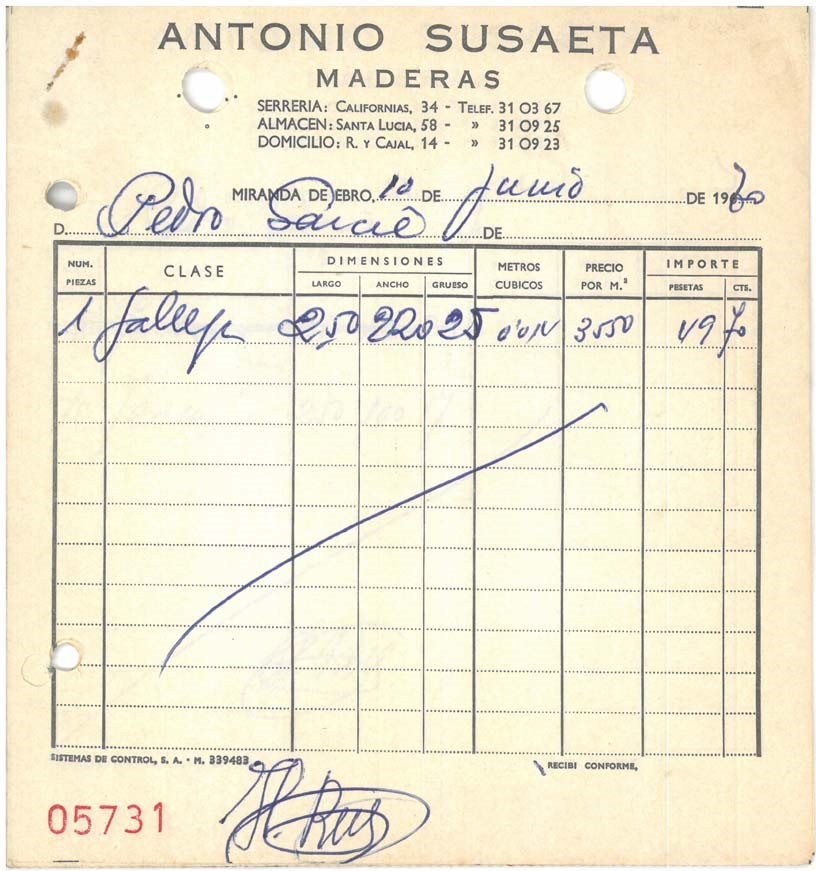 ANTONIO SUSAETA
MADERAS
SERRERIA: CALIFORNIAS, 34 - TELEF. 31 03 67
ALMACEN: SANTA LUCIA, 58 - » 31 09 25
DOMICILIO: R. Y CAJAL, 14 - » 31 09 23
MIRANDA DE EBRO, 10 DE Junio DE 1970
D. Pedro DE
NUM. PIEZAS CLASE DIMENSIONES METROS CUBICOS PRECIO POR M.³ IMPORTE
LARGO ANCHO GRUESO PESETAS CTS.
1 2,50 220 25 0'014 3550 49 70
SISTEMAS DE CONTROL, S. A. - M. 339483 RECIBI CONFORME,
05731